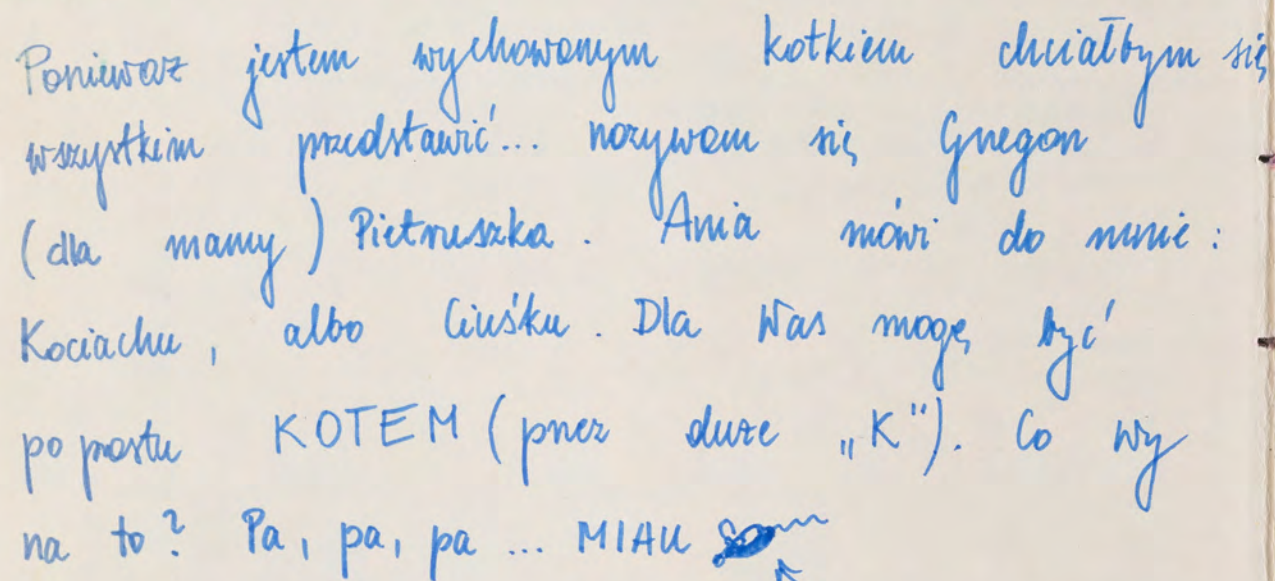 Ponieważ jestem wychowanym kotkiem chciałbym się
wszystkim przedstawić... nazywam się Grzegorz
(dla mamy) Pietruszka. Ania mówi do mnie:
Kociachu, albo Ciuśku. Dla Was mogę być
po prostu KOTEM (przez duże „K"). Co wy
na to? Pa, pa, pa ... MIAU